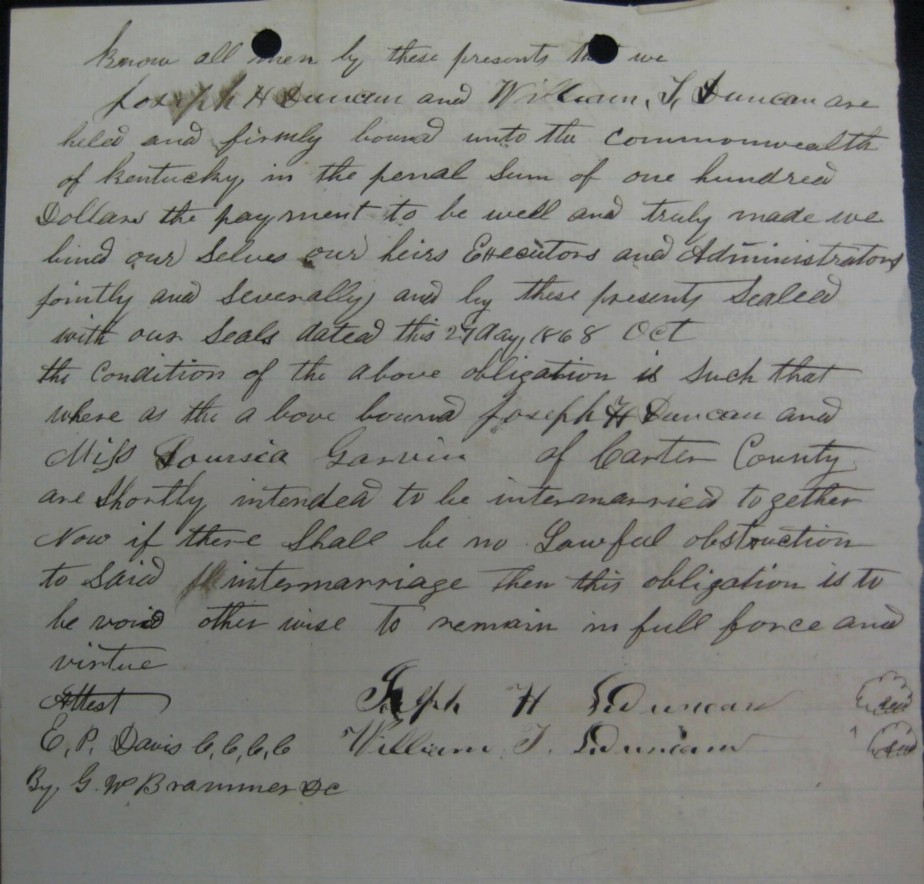 Know all men by these presents that we
Joseph H Duncan and William T. Duncan are
held and firmly bound unto the commonwealth
of Kentucky in the penal Sum of one hundred
Dollars the payment to be well and truly made we
bind our Selves our heirs Executors and Administrators
jointly and Severally and by these presents Sealed
with our Seals dated this 27 day 1868 Oct
the Condition of the above obligation is Such that
where as the a bove bound Joseph H Duncan and
Miss Garvin of Carter County
are Shortly intended to be intermarried together
Now if there Shall be no Lawful obstruction
to Said intermarriage then this obligation is to
be void other wise to remain in full force and
virtue
Attest Joseph H Duncan
E, P, Davis C, C, C, C William T. Duncan
By G. W Brammer DC